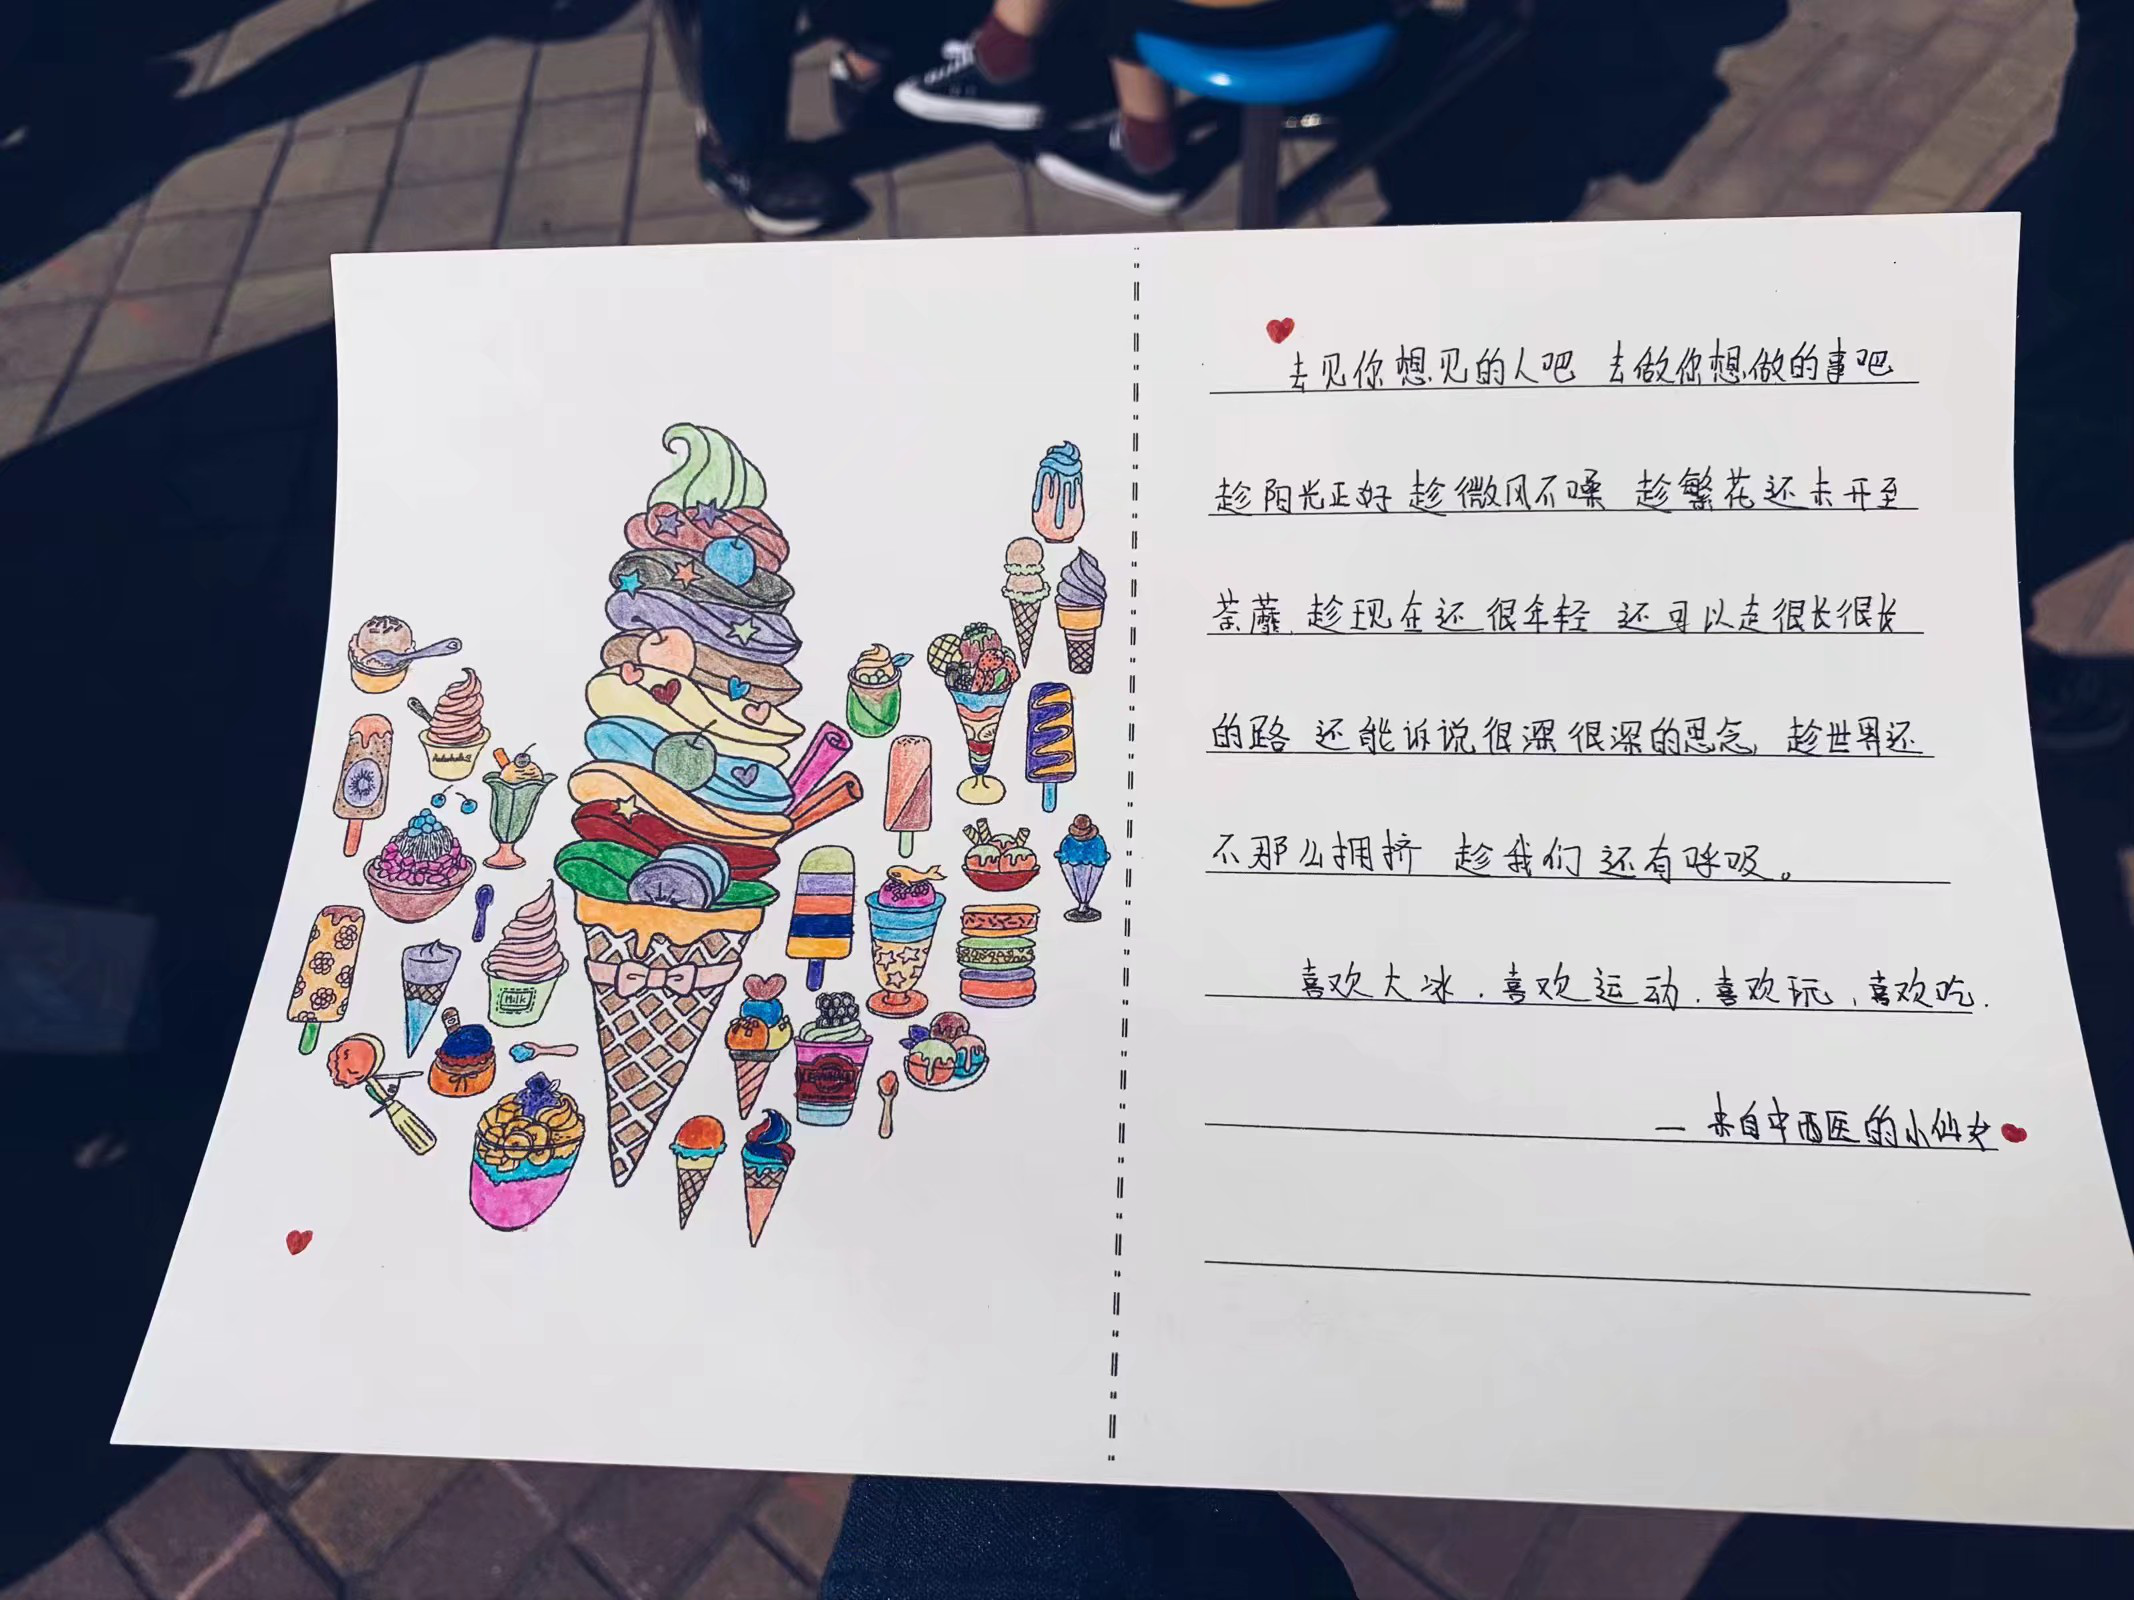 去见你想见的人吧 去做你想做的事吧
趁阳光正好 趁微风不噪 趁繁花还未开至
荼蘼,趁现在还很年轻 还可以走很长很长
的路 还能诉说很深很深的思念, 趁世界还
不那么拥挤 趁我们还有呼吸。
喜欢大冰,喜欢运动,喜欢玩,喜欢吃.
— 来自中西医的小仙女
Milk